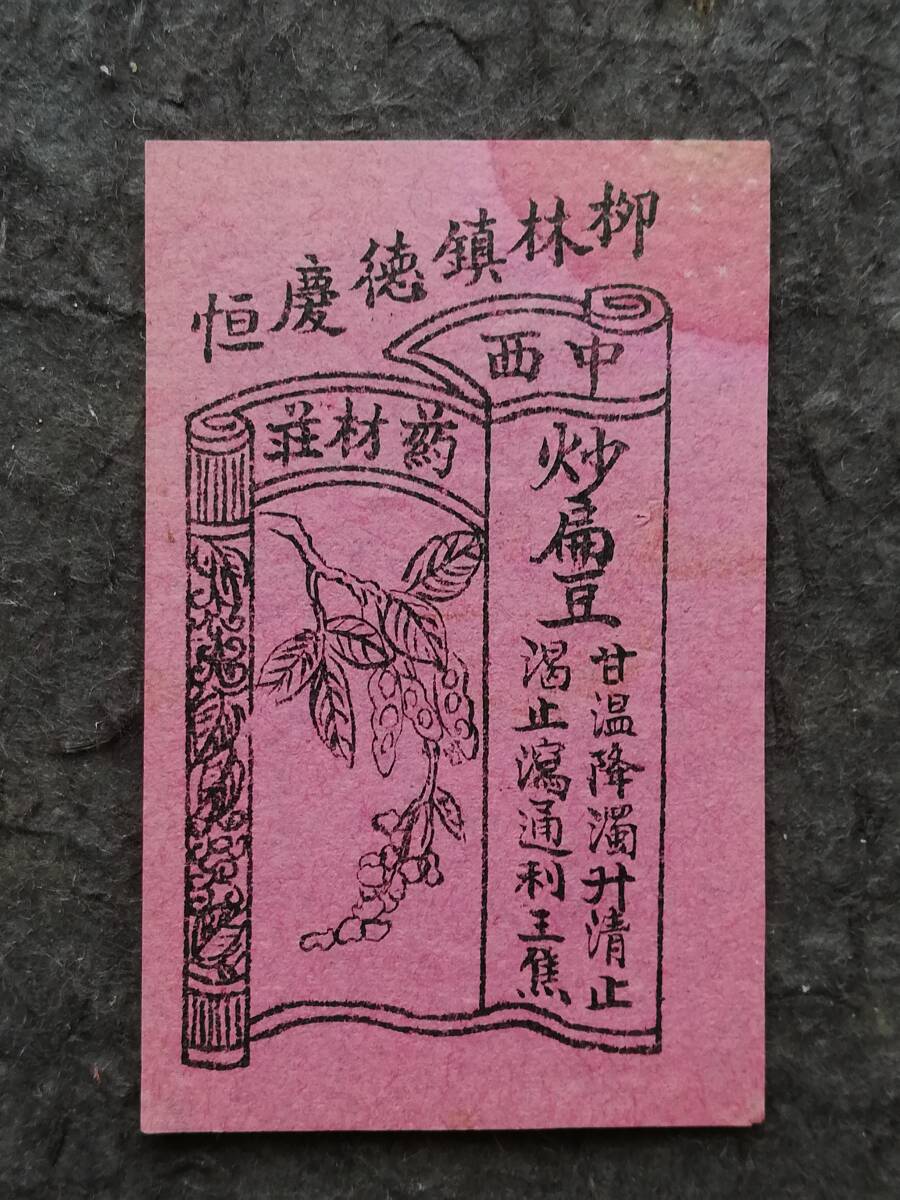 柳林鎮德慶恒
中西
葯材莊
炒扁豆
甘温降濁升清止
渴止瀉通利三焦